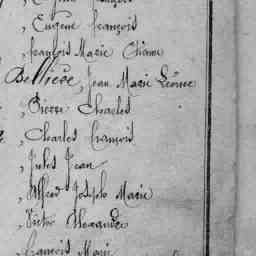 , Eugène François
, François Marie
Bellière, Jean Marie
, Pierre Charles
, Charles François
, Jules Jean
, Alfred Joseph Marie
, Victor Alexandre
, François Marie